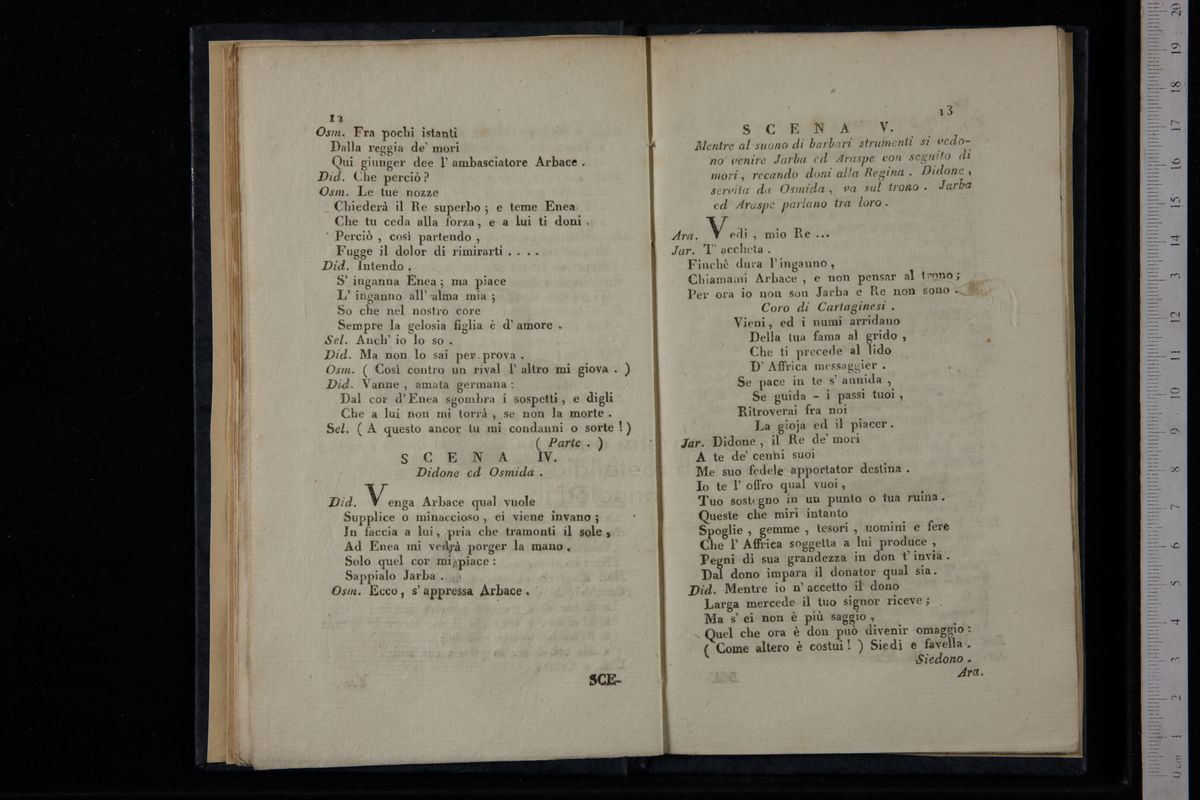 12
Osm. Fra pochi istanti
Dalla reggia de' mori
Qui giunger dee l' ambasciatore Arbace .
Did. Che perciò ?
Osm. Le tue nozze
Chiederà il Re superbo ; e teme Enea
Che tu ceda alla forza , e a lui ti doni .
Perciò , così partendo ,
Fugge il dolor di rimirarti . . . .
Did. Intendo .
S' inganna Enea ; ma piace
L' inganno all' alma mia ;
So che nel nostro core
Sempre la gelosia figlia è d' amore .
Sel. Anch' io lo so .
Did. Ma non lo sai per prova .
Osm. ( Così contro un rival l' altro mi giova . )
Did. Vanne , amata germana :
Dal cor d'Enea sgombra i sospetti , e digli
Che a lui non mi torrà , se non la morte .
Sel. ( A questo ancor tu mi condanni o sorte ! )
( Parte . )
SCENA IV.
Didone ed Osmida .
Did. Venga Arbace qual vuole
Supplice o minaccioso , ei viene invano ;
In faccia a lui , pria che tramonti il sole ,
Ad Enea mi vedrà porger la mano .
Solo quel cor mi piace :
Sappialo Jarba .
Osm. Ecco , s' appressa Arbace .
SCE-
13
SCENA V.
Mentre al suono di barbari strumenti si vedo-
no venire Jarba ed Araspe con seguito di
mori , recando doni alla Regina . Didone ,
servita da Osmida , va sul trono . Jarba
ed Araspe parlano tra loro .
Ara. Vedi , mio Re ...
Jar. T' accheta .
Finchè dura l'inganno ,
Chiamami Arbace , e non pensar al trono ;
Per ora io non son Jarba e Re non sono .
Coro di Cartaginesi .
Vieni , ed i numi arridano
Della tua fama al grido ,
Che ti precede al lido
D' Affrica messaggier .
Se pace in te s' annida ,
Se guida - i passi tuoi ,
Ritroverai fra noi
La gioja ed il piacer .
Jar. Didone , il Re de' mori
A te de' cenni suoi
Me suo fedele apportator destina .
Io te l' offro qual vuoi ,
Tuo sostegno in un punto o tua ruina .
Queste che miri intanto
Spoglie , gemme , tesori , uomini e fere
Che l' Affrica soggetta a lui produce ,
Pegni di sua grandezza in don t' invia .
Dal dono impara il donator qual sia .
Did. Mentre io n' accetto il dono
Larga mercede il tuo signor riceve ;
Ma s' ei non è più saggio ,
Quel che ora è don può divenir omaggio :
( Come altero è costui ! ) Siedi e favella .
Siedono .
Ara.